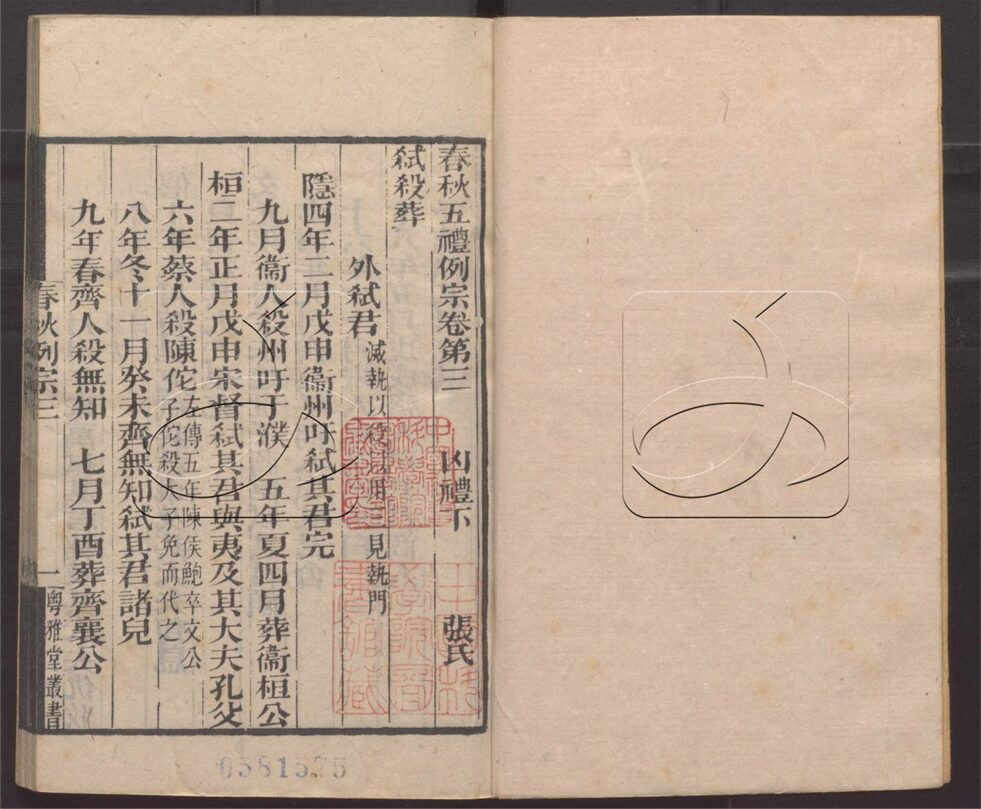 春秋五禮例宗卷第三 凶禮下 張氏
弑殺葬
外弑君 滅執以殺 用 見執門
隱四年二月戊申衞州吁弑其君完
九月衞人殺州吁于濮 五年夏四月葬衞桓公
桓二年正月戊申宋督弑其君與夷及其大夫孔父
六年蔡人殺陳佗 左傳五年陳侯鮑卒文公
子佗殺大子免而代之
八年冬十一月癸未齊無知弑其君諸兒
九年春齊人殺無知 七月丁酉葬齊襄公
春秋例宗三 一 粵雅堂叢書
0581535